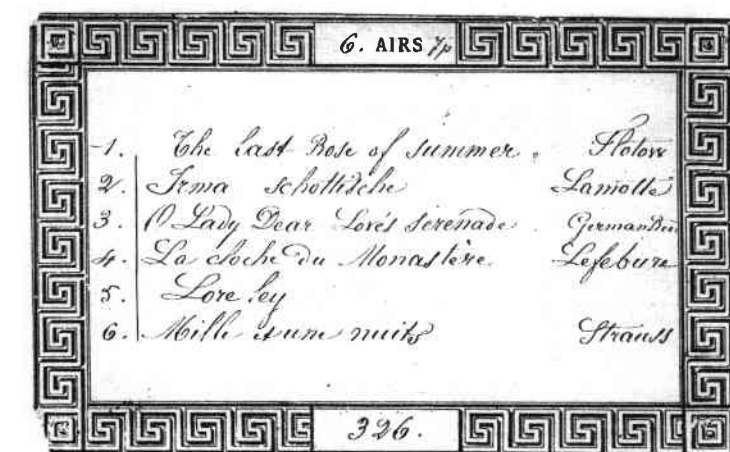 6. AIRS 7p
1. The Last Rose of summer. Flotow
2. Irma schottische Lamotte
3. O Lady Dear Love's serenade German
4. La cloche du Monastère Lefebure
5. Loreley
6. Mille et une nuits Strauss
326.